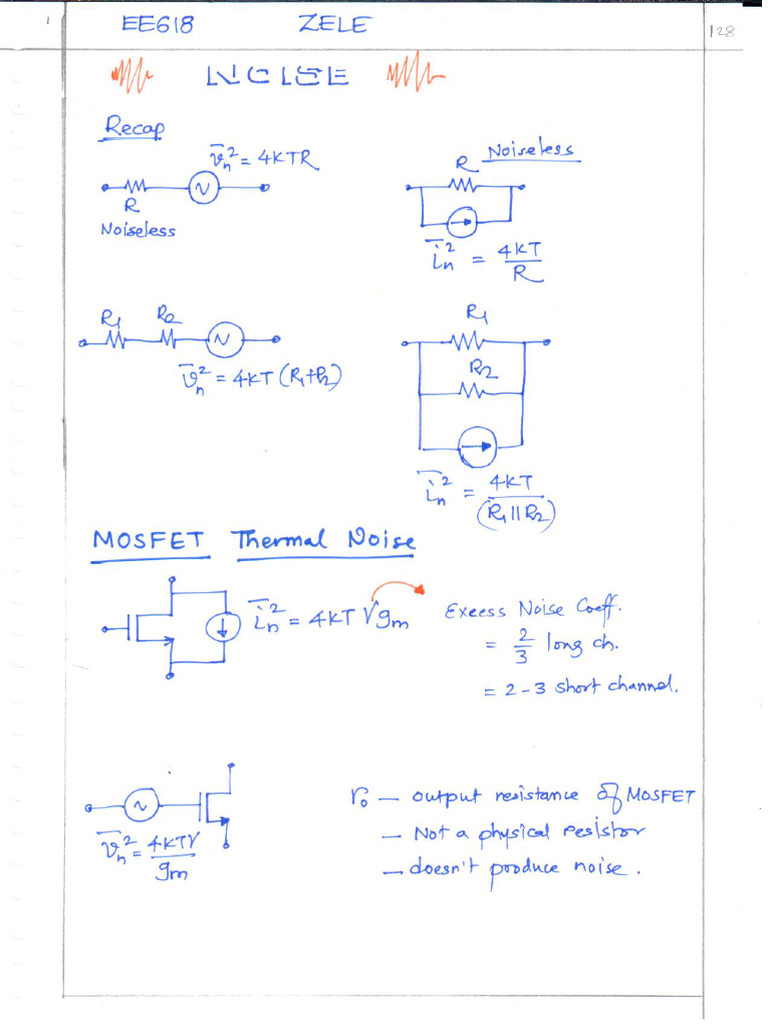 1 EE618 ZELE 128
NOISE
Recap
v̄n² = 4KTR
R
Noiseless
R Noiseless
īn² = 4KT/R
R1 R2
v̄n² = 4KT (R1+R2)
R1
R2
īn² = 4KT/(R1||R2)
MOSFET Thermal Noise
īn² = 4KTγgm
Excess Noise Coeff.
= 2/3 long ch.
= 2-3 short channel.
v̄n² = 4KTγ/gm
ro — output resistance of MOSFET
— Not a physical resistor
— doesn't produce noise.